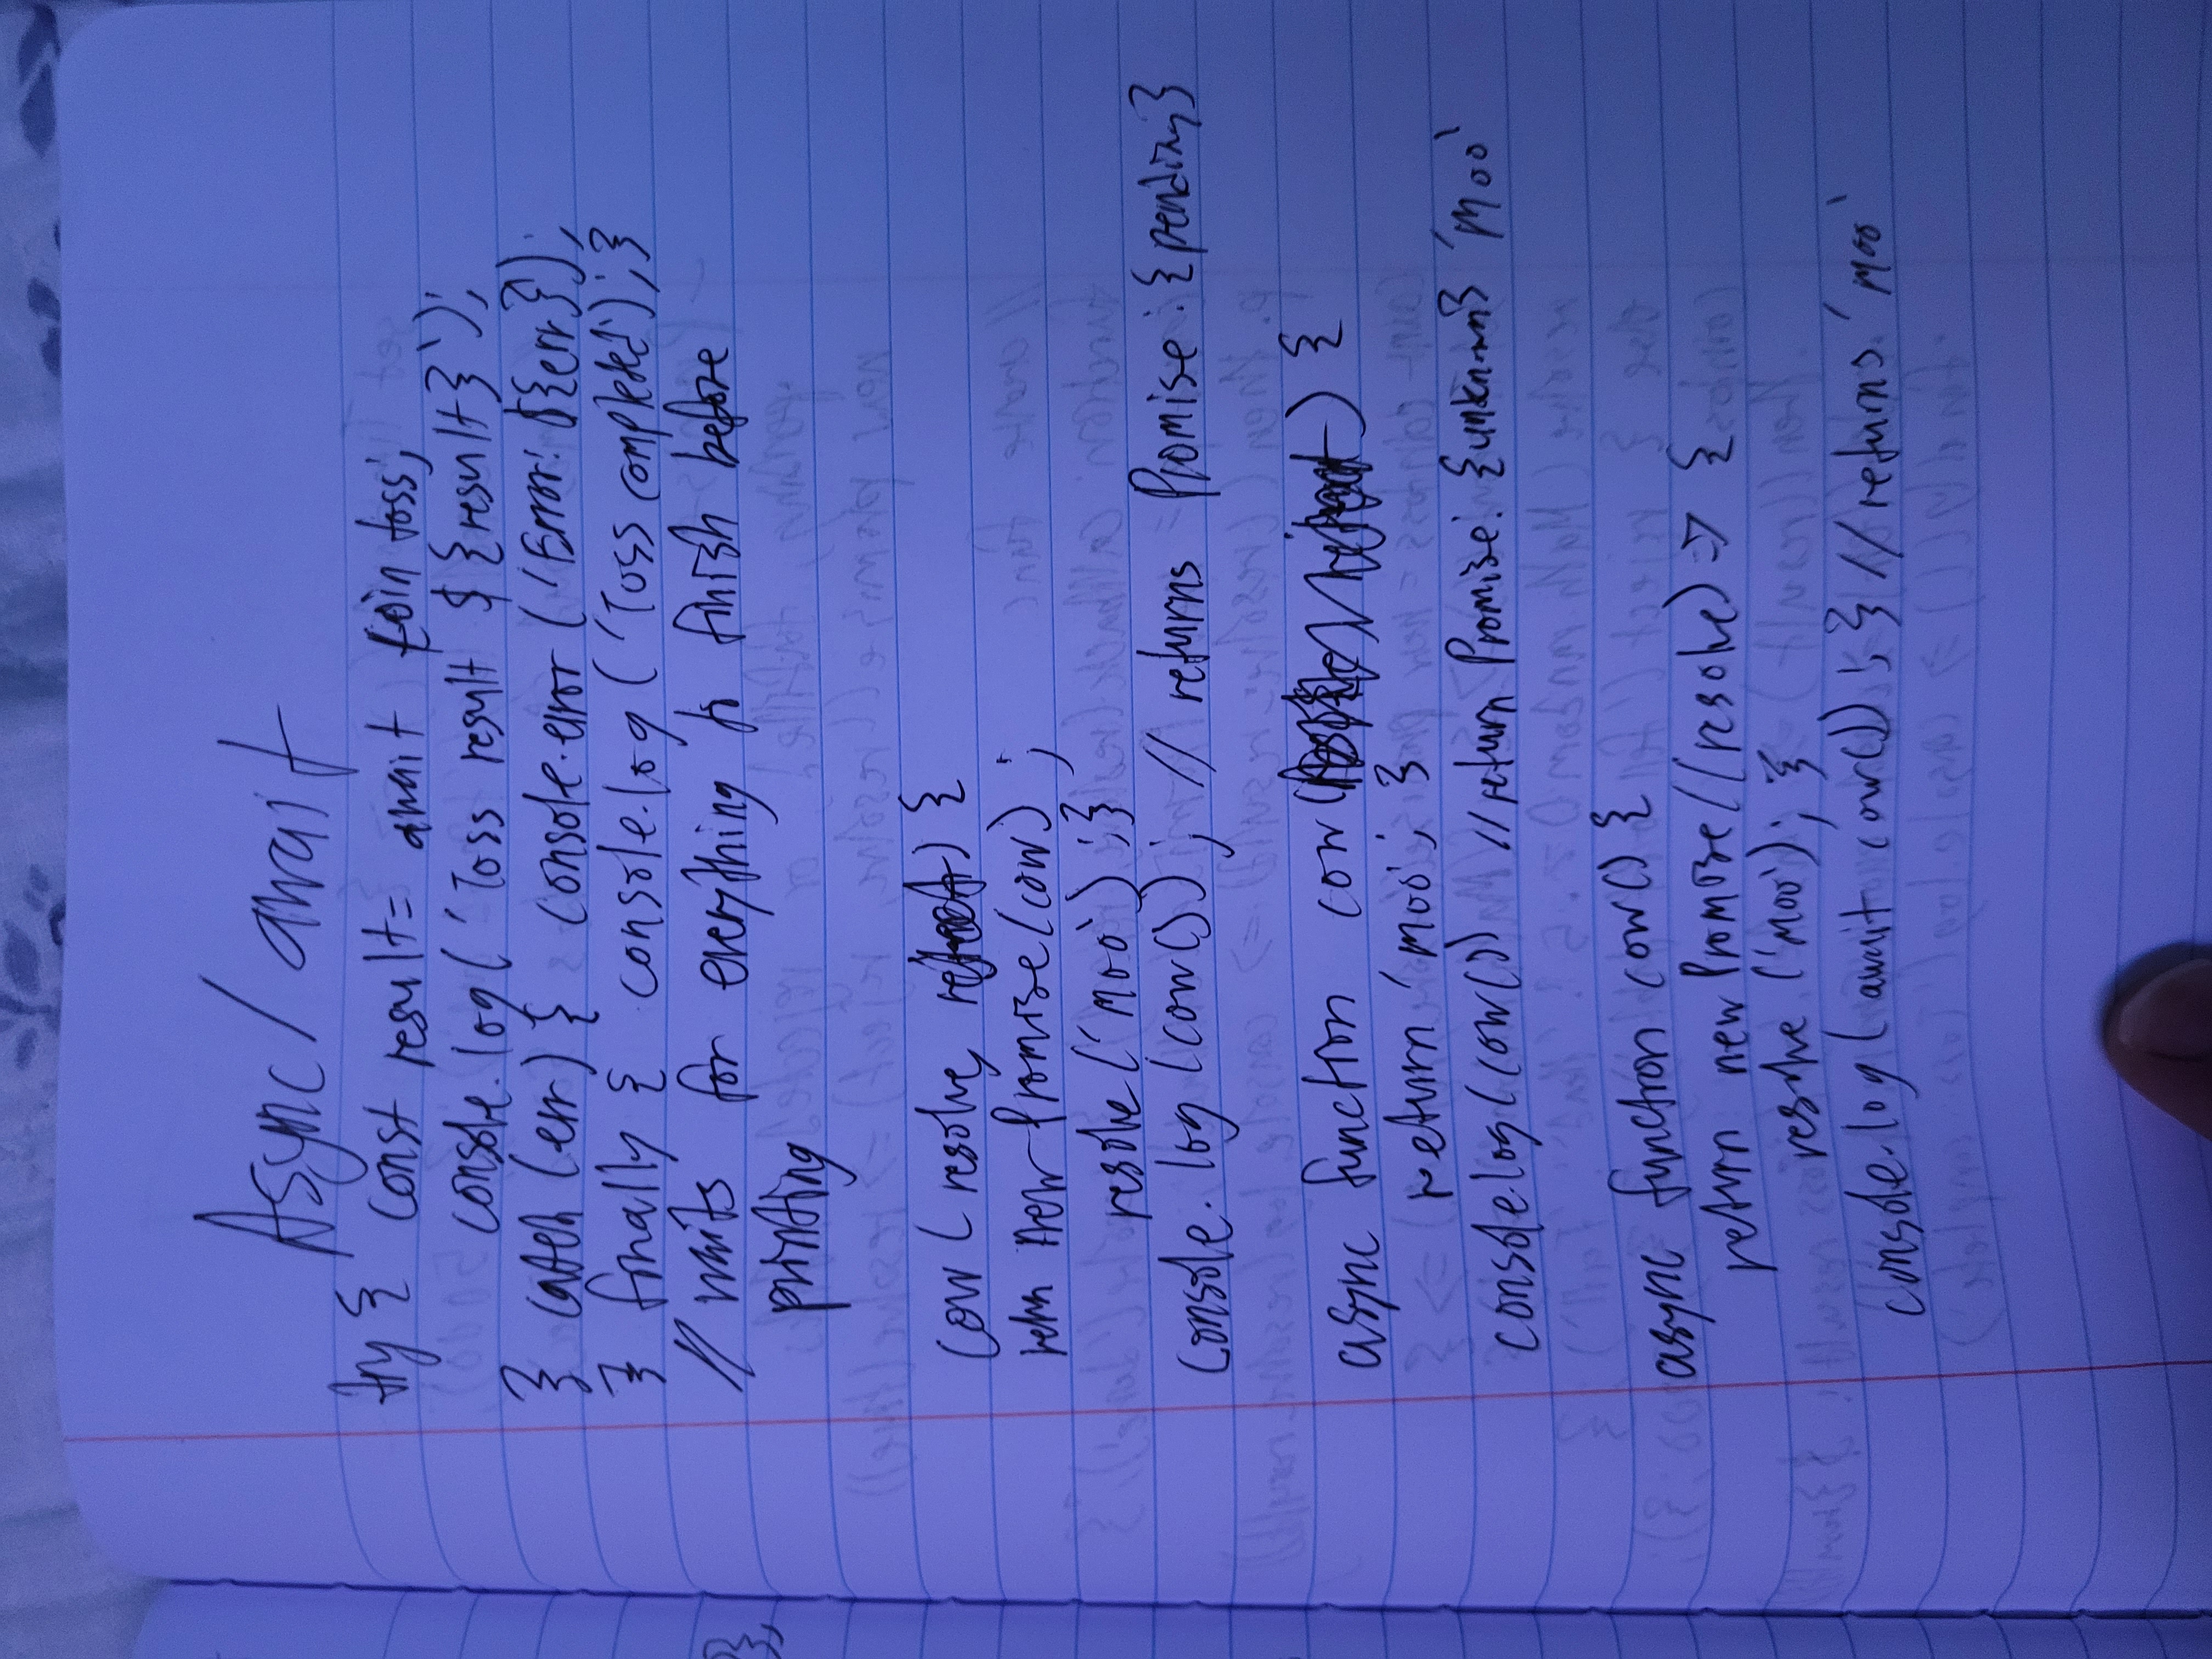 Async/await
try { const result = await coin toss;
console.log('Toss result ${result}');
} catch (err) { console.error ('Error: ${err}');
} finally { console.log ('Toss completed'); }
// waits for everything to finish before
printing
cow (resolve, ) {
return new Promise (cow) ;
resolve ('moo') ; }
console.log (cow()) ; // returns Promise : {pending}
async function cow () {
return 'moo'; }
console.log (cow()) // return Promise: {unknown} 'moo'
async function cow() {
return new Promise ((resolve) => {
resolve ('moo'); }
console.log (await cow()) ; } // returns 'moo'